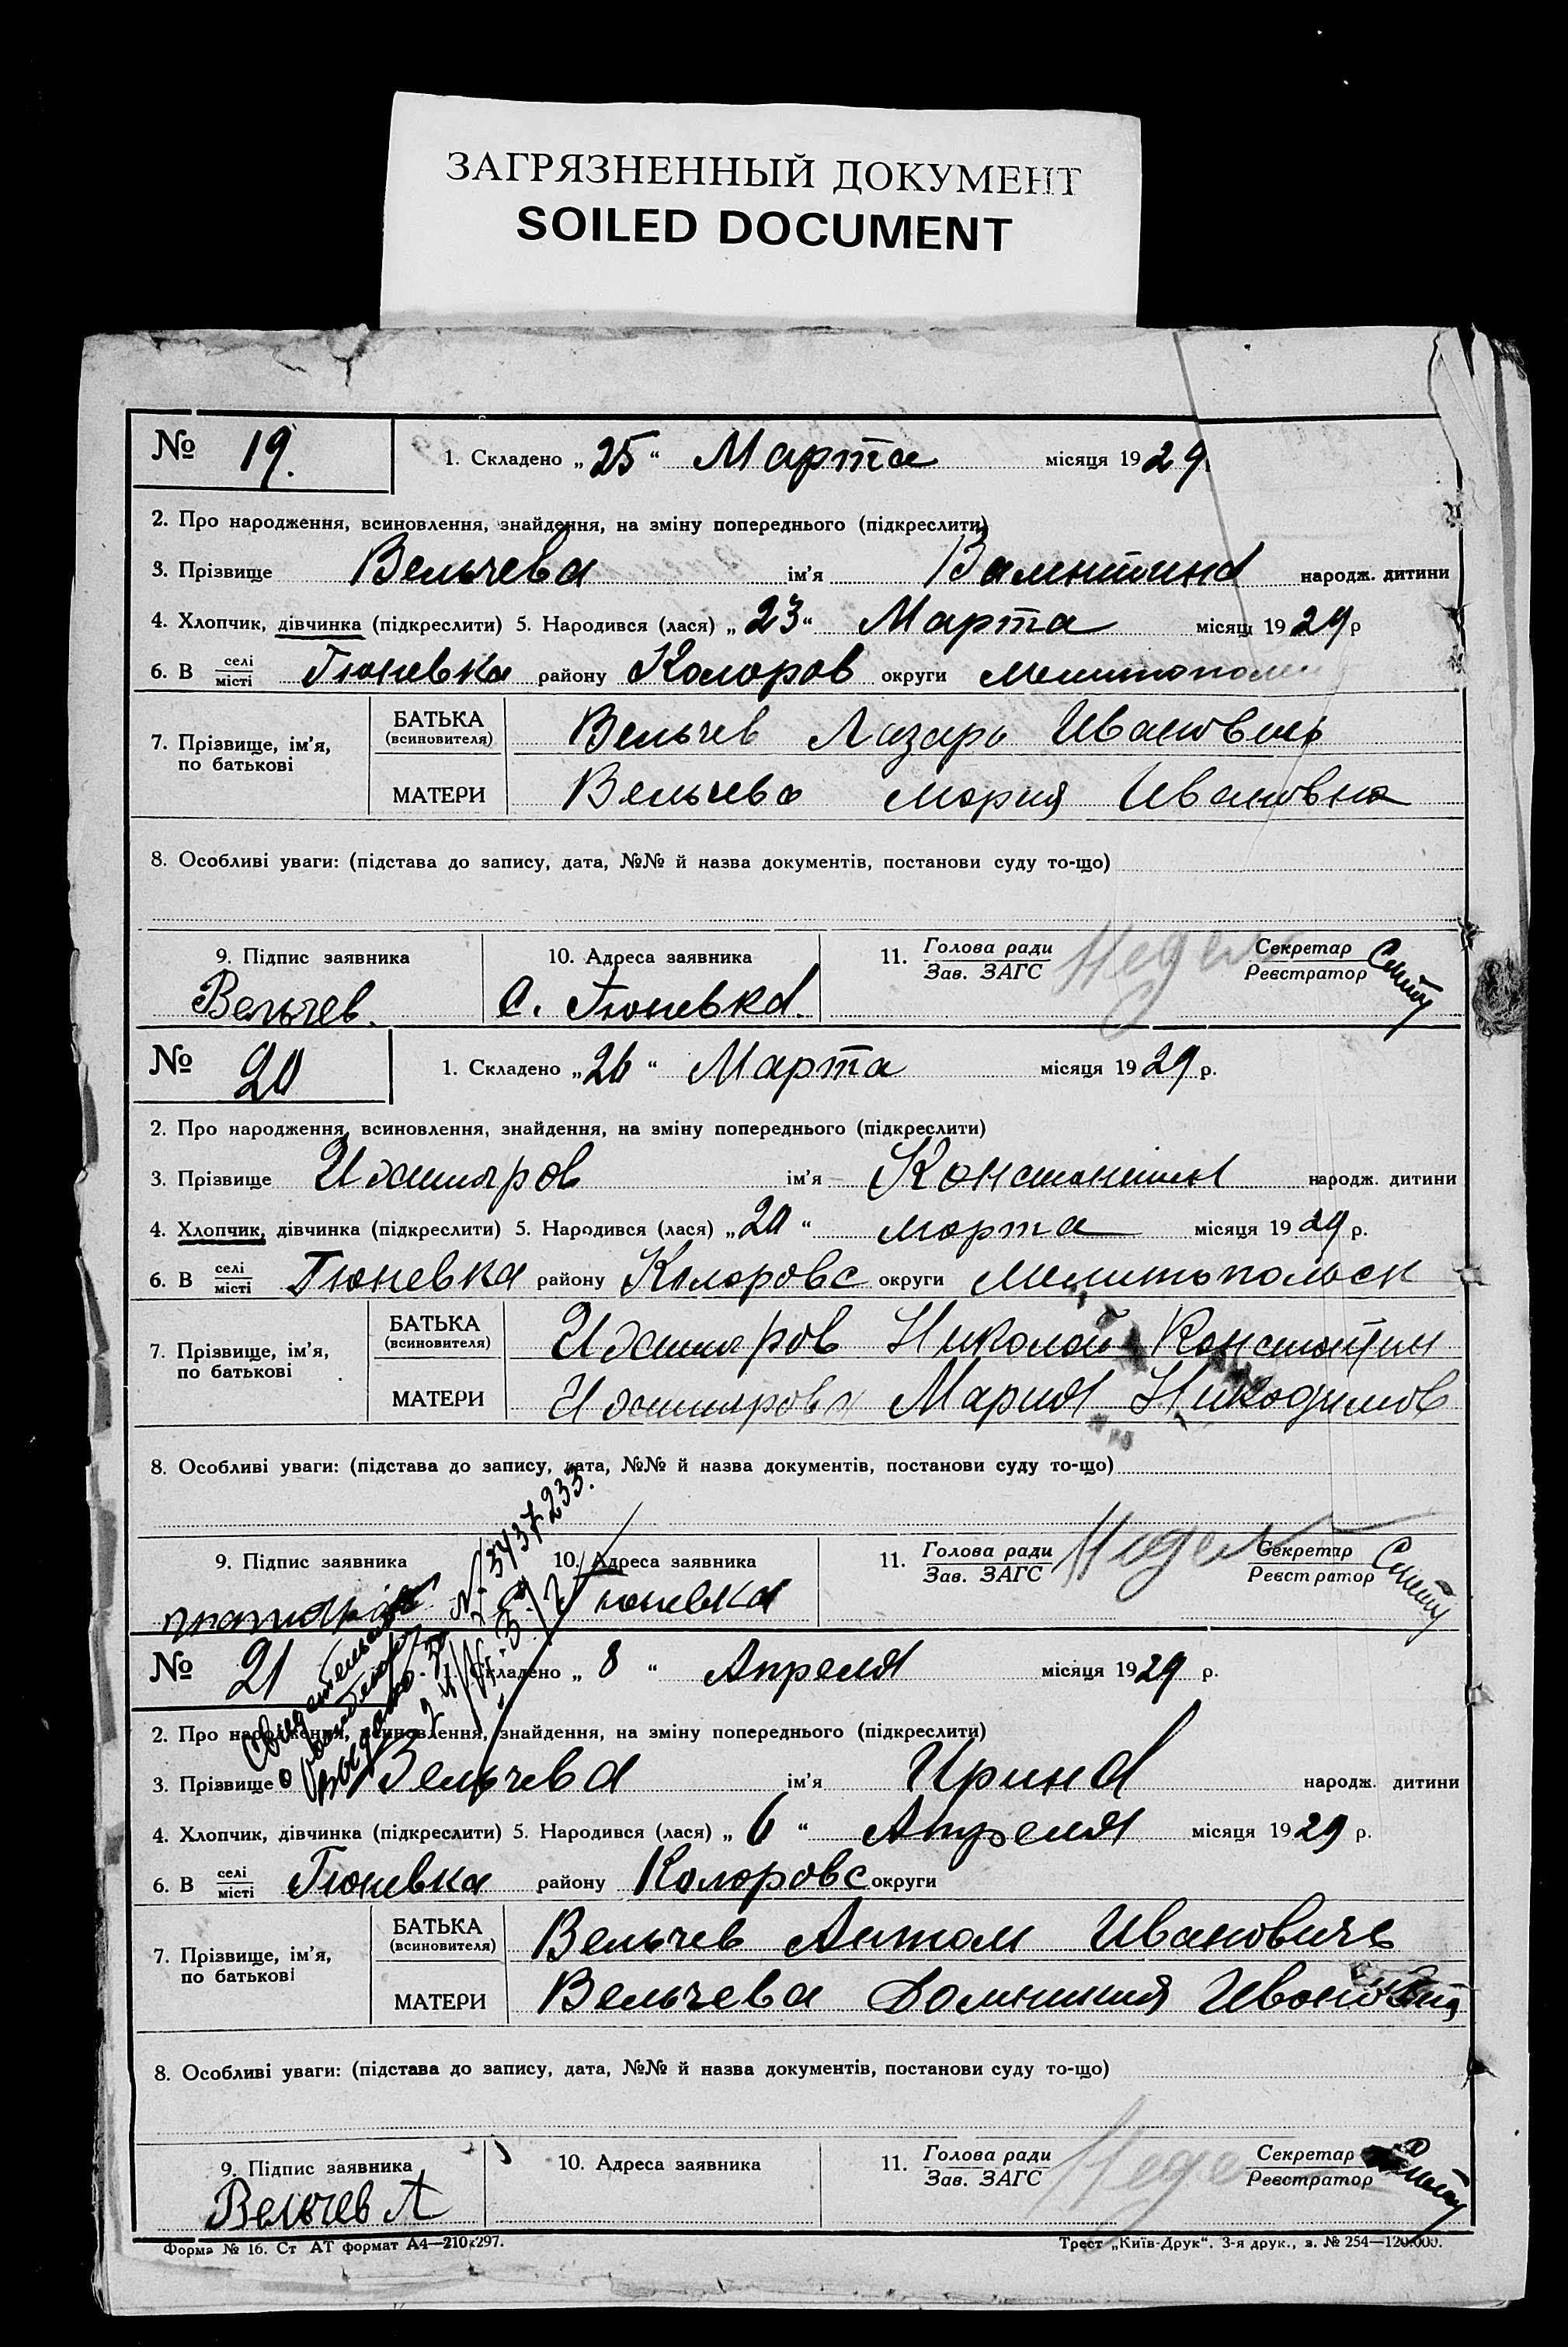 ЗАГРЯЗНЕННЫЙ ДОКУМЕНТ
SOILED DOCUMENT
№ 19. 1. Складено „25“ Марта місяця 1929.
2. Про народження, всиновлення, знайдення, на зміну попереднього (підкреслити)
3. Прізвище Вельчева ім’я Валентина народж. дитини
4. Хлопчик, дівчинка (підкреслити) 5. Народився (лася) „23“ Марта місяц 1929 р
6. В селі/місті Гюневка району Коларов округи Мелитополь
7. Прізвище, ім’я, по батькові БАТЬКА (всиновителя) Вельчев Лазарь Иванович
МАТЕРИ Вельчева Мария Ивановна
8. Особливі уваги: (підстава до запису, дата, №№ й назва документів, постанови суду то-що)
9. Підпис заявника 10. Адреса заявника 11. Голова ради/Зав. ЗАГС Секретар/Реєстратор
Вельчев. С. Гюневка.
№ 20 1. Складено „26“ Марта місяця 1929 р.
2. Про народження, всиновлення, знайдення, на зміну попереднього (підкреслити)
3. Прізвище ім’я Константин народж. дитини
4. Хлопчик, дівчинка (підкреслити) 5. Народився (лася) „20“ марта місяця 1929 р.
6. В селі/місті Гюневка району Коларовс округи Мелитопольск
7. Прізвище, ім’я, по батькові БАТЬКА (всиновителя) Николай Константин
МАТЕРИ Мария Никодимов
8. Особливі уваги: (підстава до запису, дата, №№ й назва документів, постанови суду то-що)
9. Підпис заявника 10. Адреса заявника 11. Голова ради/Зав. ЗАГС Секретар/Реєстратор
Гюневка
Свидетельство
о
№ 3737233.
№ 21 1. Складено „8“ Апреля місяця 1929 р.
2. Про народження, всиновлення, знайдення, на зміну попереднього (підкреслити)
3. Прізвище Вельчева ім’я Ирина народж. дитини
4. Хлопчик, дівчинка (підкреслити) 5. Народився (лася) „6“ Апреля місяця 1929 р.
6. В селі/місті Гюневка району Коларовс округи
7. Прізвище, ім’я, по батькові БАТЬКА (всиновителя) Вельчев Антон Ивановичь
МАТЕРИ Вельчева Домникия
8. Особливі уваги: (підстава до запису, дата, №№ й назва документів, постанови суду то-що)
9. Підпис заявника 10. Адреса заявника 11. Голова ради/Зав. ЗАГС Секретар/Реєстратор
Вельчев А
Форма № 16. Ст АТ формат А4—210х297. Трест „Київ-Друк“. 3-я друк., з. № 254—120.000.